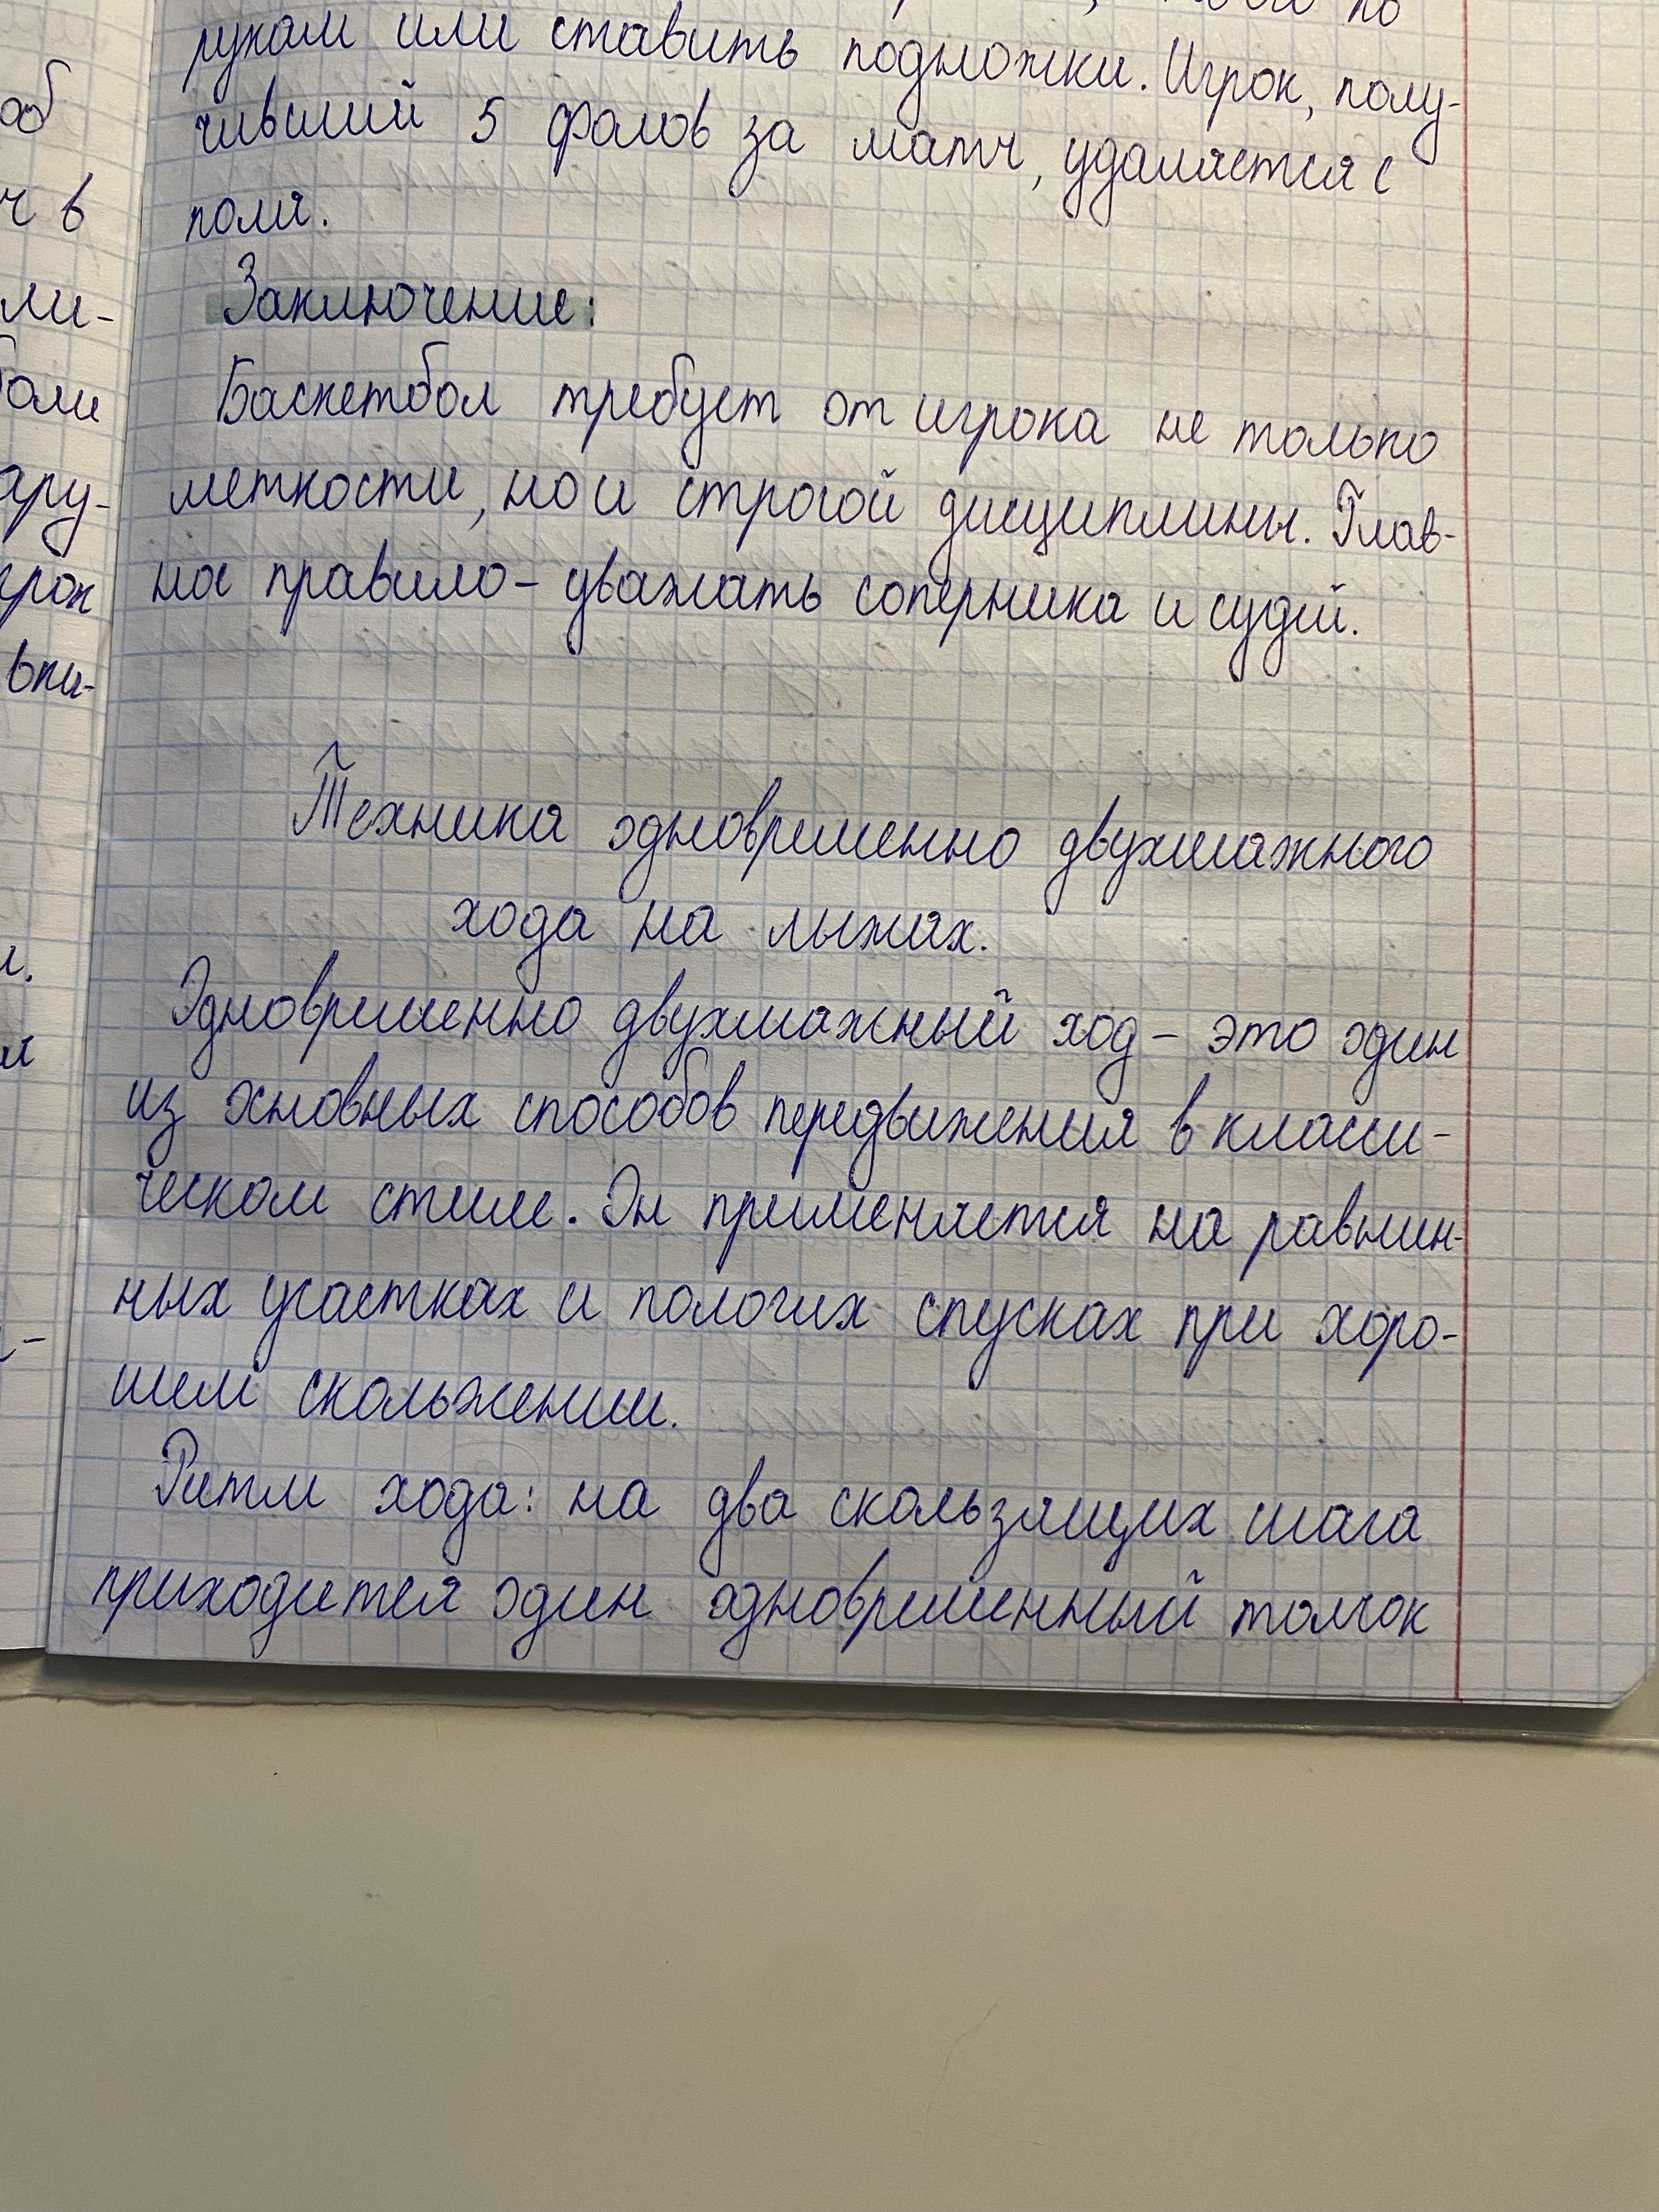 рукам или ставить подножки. Игрок, полу-
чивший 5 фолов за матч, удаляется с
поля.
Заключение:
Баскетбол требует от игрока не только
меткости, но и строгой дисциплины. Глав-
ное правило - уважать соперника и судей.
Техника одновременно двухшажного
хода на лыжах.
Одновременно двухшажный ход - это один
из основных способов передвижения в класси-
ческом стиле. Он применяется на равнин-
ных участках и пологих спусках при хоро-
шем скольжении.
Ритм хода: на два скользящих шага
приходится один одновременный толчок